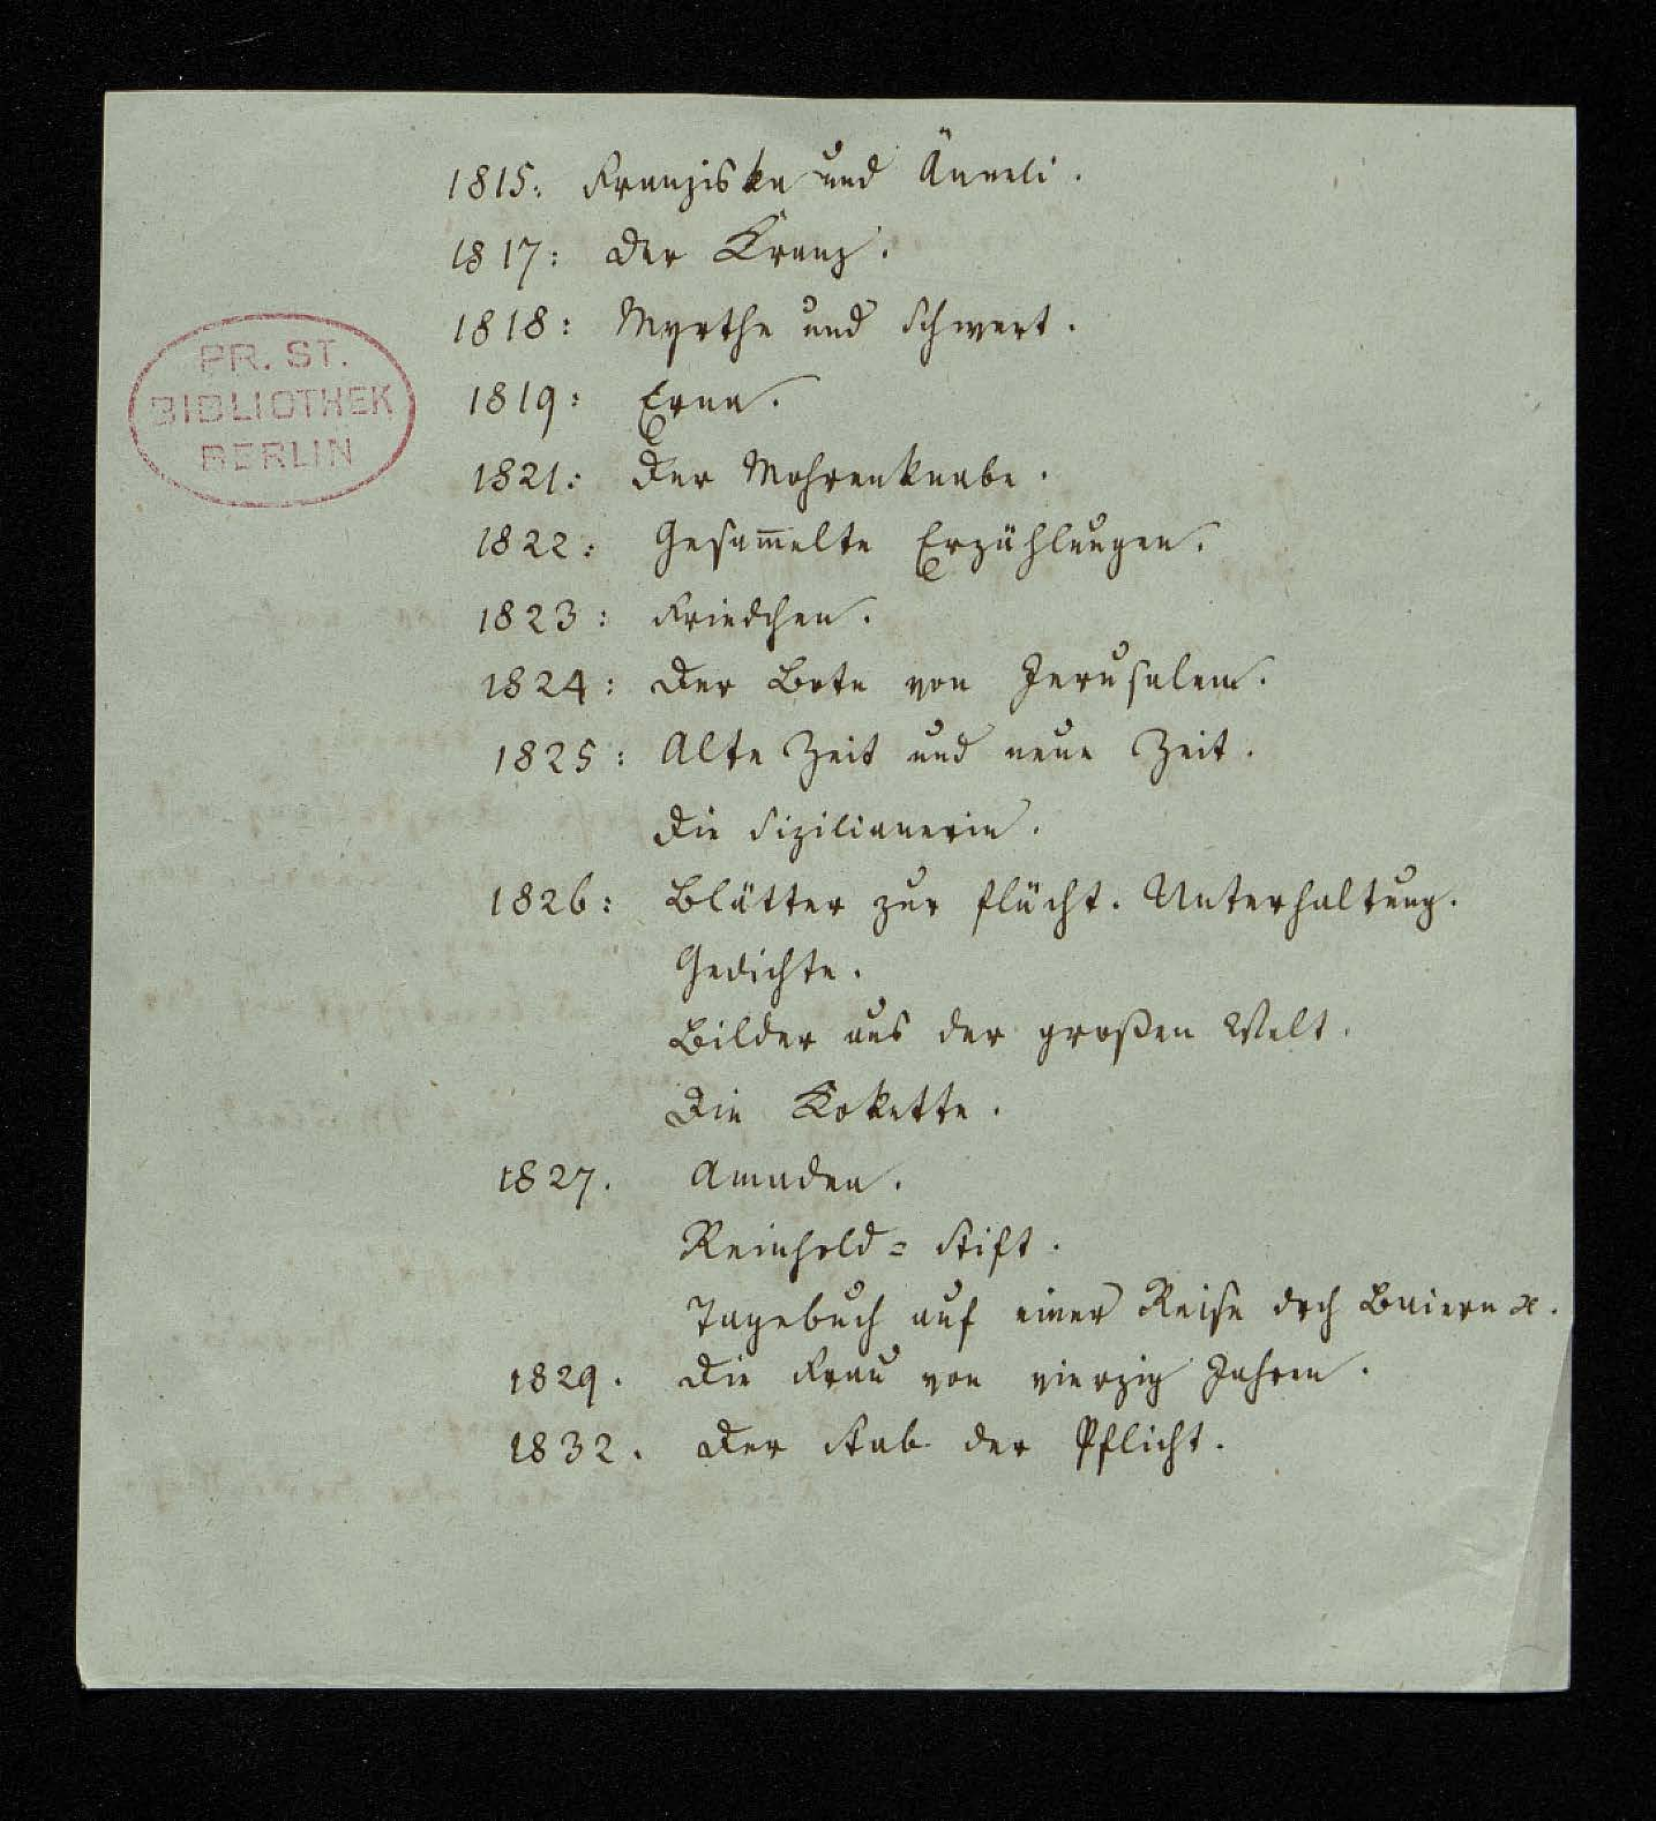 1815: Franziska und Änneli.
1817: Der Kranz.
1818: Myrthe und Schwert.
PR. ST.
BIBLIOTHEK
BERLIN
1819: Erna.
1821: Der Mohrenknabe.
1822: Gesam̅elte Erzählungen.
1823: Friedchen.
1824: Der Bote von Jerusalem.
1825: Alte Zeit und neue Zeit.
Die Sizilianerin.
1826: Blätter zur flücht. Unterhaltung.
Gedichte.
Bilder aus der großen Welt.
Die Kokette.
1827. Amaden.
Reinhold=Stift.
Tagebuch auf einer Reise dch Baiern ꝛc.
1829. Die Frau von vierzig Jahren.
1832. Der Stab der Pflicht.